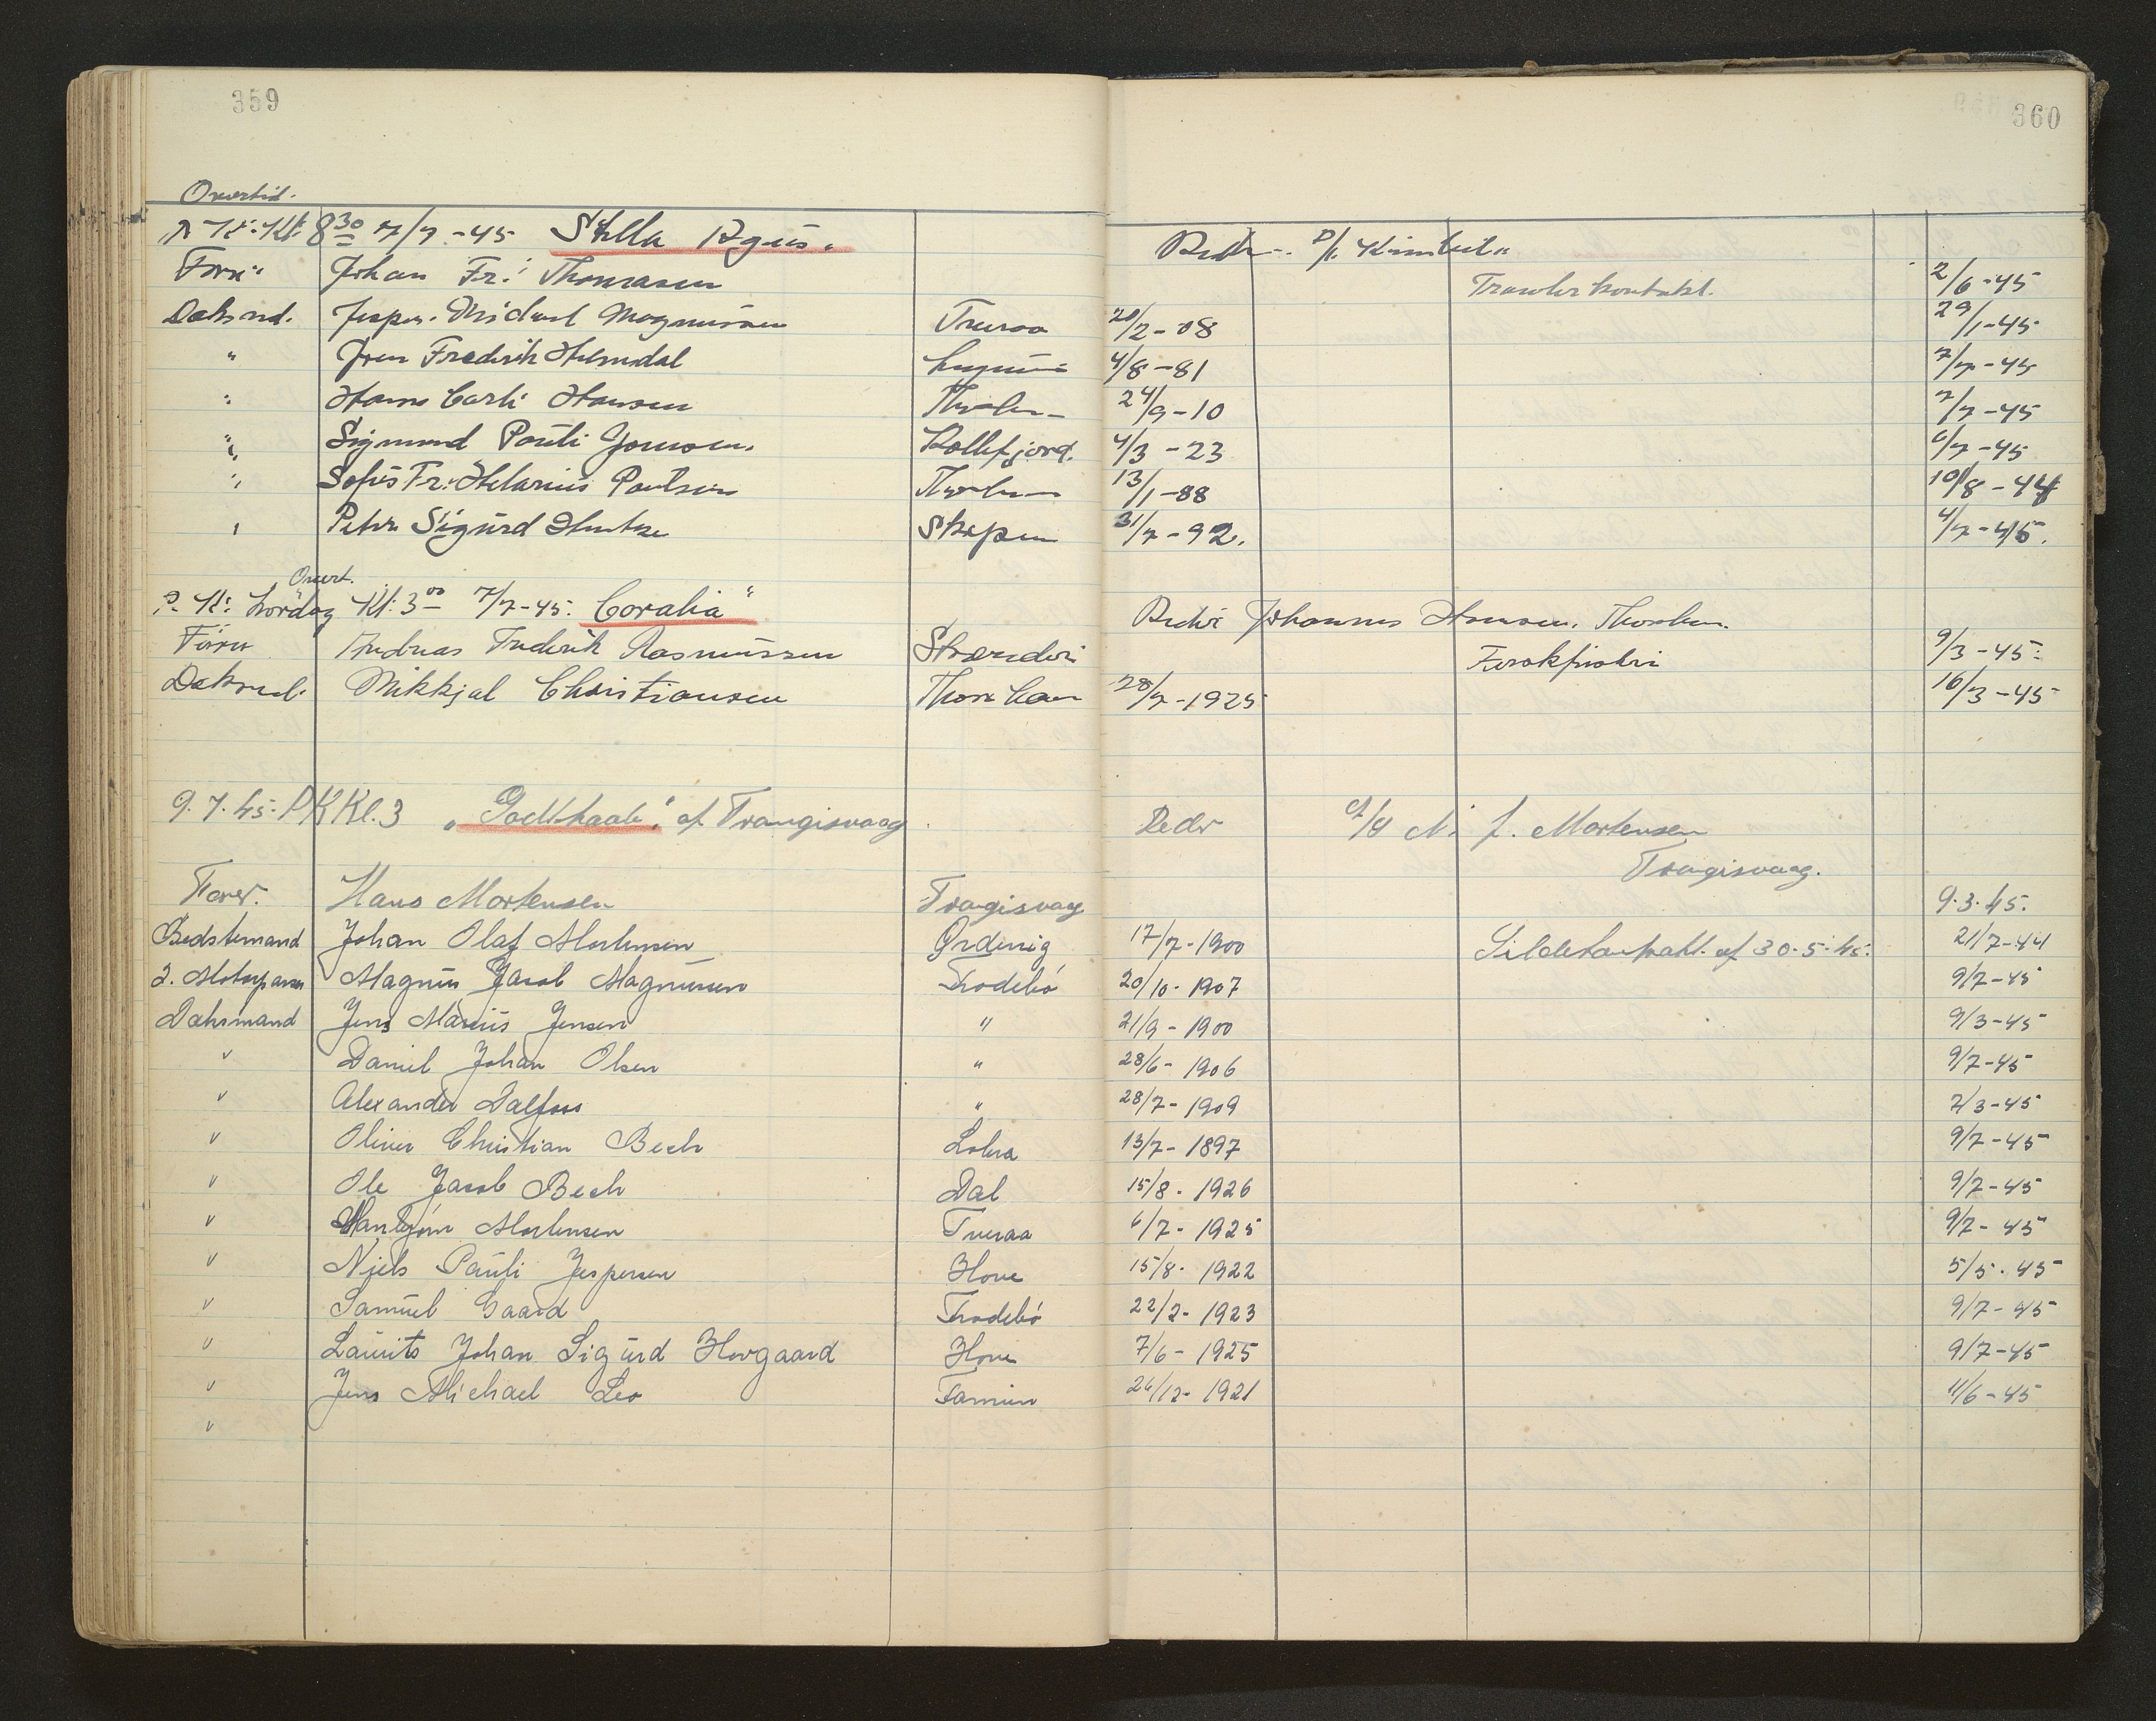 359
360
Overtid.
P. K. Kl. 8³⁰ 7/7-45 Stella Argus"
Reder
Fører Johan Fr. Thomasen Trawlerkontrakt. 2/6-45
Deksmd. Jesper Michael Magnussen Tveraa 20/2-08 29/1-45
" Jens Frederik Helmsdal 4/8-81 7/7-45
" Hans Carli Hansen Thorshavn 24/9-10 7/7-45
" Sigmund Pauli Joensen. Kollefjord. 4/3-23 6/7-45
" Sofus Fr. Hilarius Poulsen Thorshavn 13/1-88 10/8-44
" Peter Sigurd Skopun 31/7-92. 4/7-45.
Overt.
P. K. Lørdag Kl. 3⁰⁰ 7/7-45. "Coralia"
Reder Johannes Thorshavn.
Fører Andreas Frederik Rasmussen Strænder Færøkfiskeri 9/3-45.
Deksmd. Mikkjal Christiansen Thorshavn 28/7-1925 16/3-45
9.7.45. P.K Kl. 3 "Godthaab" af Trangisvaag Reder A/S N. J. Mortensen
Trangisvaag.
Fører. Hans Mortensen Trangisvaag 9.3.45.
Bedstemand Johan Olaf Mortensen Ørdevig 17/7-1900 Sildekontrakt. af 30.5.45. 21/7-44
2. Motorpasser Magnus Jacob Magnussen Frodebö 20/10-1907 9/7-45
Deksmand Jens Marius Jensen " 21/9-1900 9/3-45
" Daniel Johan Olsen " 28/6-1906 9/7-45
" Alexander Dalfoss " 28/7-1909 7/3-45
" Oliver Christian Bech Lobra 13/7-1897 9/7-45
" Ole Jacob Bech Dal 15/8-1926 9/7-45
" Mortensen Tveraa 6/7-1925 9/7-45
" Niels Pauli Jespersen Hove 15/8-1922 5/5-45
" Samuel Gaard Frodebö 22/2-1923 9/7-45
" Laurits Johan Sigurd Hovgaard Hove 7/6-1925 9/7-45
" Jens Michael Leo Famien 26/12-1921 11/6-45
"